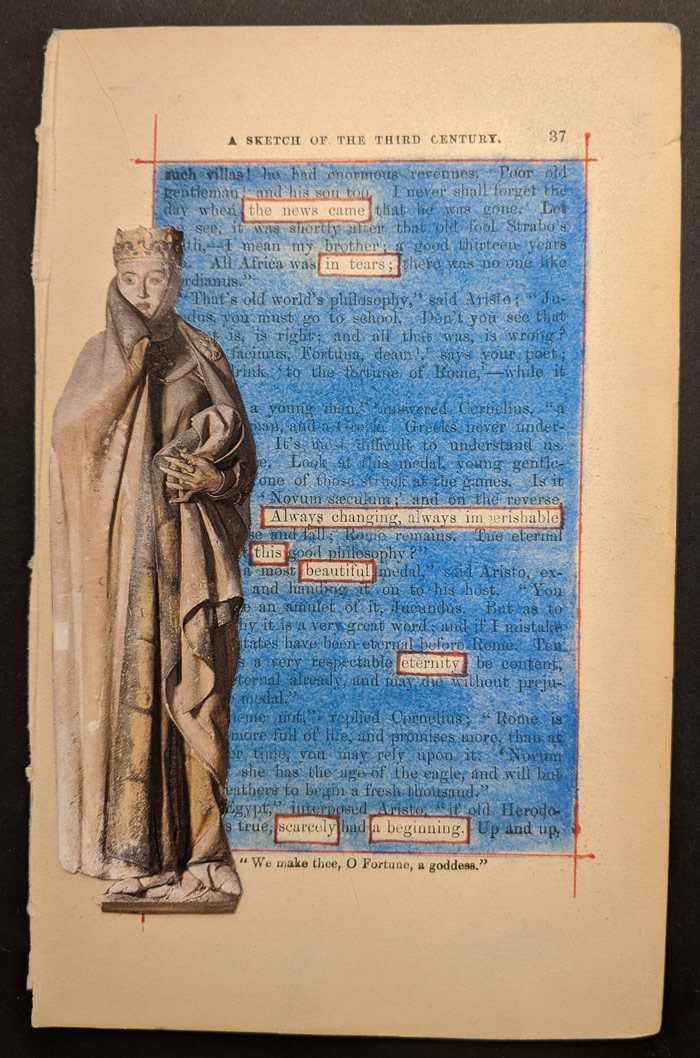 A SKETCH OF THE THIRD CENTURY. 37
such villas! he had enormous revenues. Poor old
gentleman! and his son too. I never shall forget the
day when the news came that he was gone. Let
see, it was shortly after that old fool Strabo's
th,—I mean my brother; a good thirteen years
All Africa was in tears; there was no one like
ordianus."
"That's old world's philosophy," said Aristo; "Ju-
dus, you must go to school. Don't you see that
is, is right; and all that was, is wrong?
facimus, Fortuna, deam¹,' says your poet;
drink 'to the fortune of Rome,'—while it
a young man," answered Cornelius, "a
man, and a Greek. Greeks never under-
It's most difficult to understand us.
e. Look at this medal, young gentle-
one of those struck at the games. Is it
'Novum sæculum;' and on the reverse,
Always changing, always im erishable
se and fall; Rome remains. The eternal
this good philosophy?"
a most beautiful medal," said Aristo, ex-
and handing it on to his host. "You
e an amulet of it, Jucundus. But as to
hy it is a very great word; and if I mistake
states have been eternal before Rome. Ten
s a very respectable eternity; be content,
ternal already, and may die without preju-
medal."
heme not," replied Cornelius; "Rome is
more full of life, and promises more, than at
er time, you may rely upon it. 'Novum
she has the age of the eagle, and will but
eathers to begin a fresh thousand."
Egypt," interposed Aristo, "if old Herodo-
s true, scarcely had a beginning. Up and up,
"We make thee, O Fortune, a goddess."